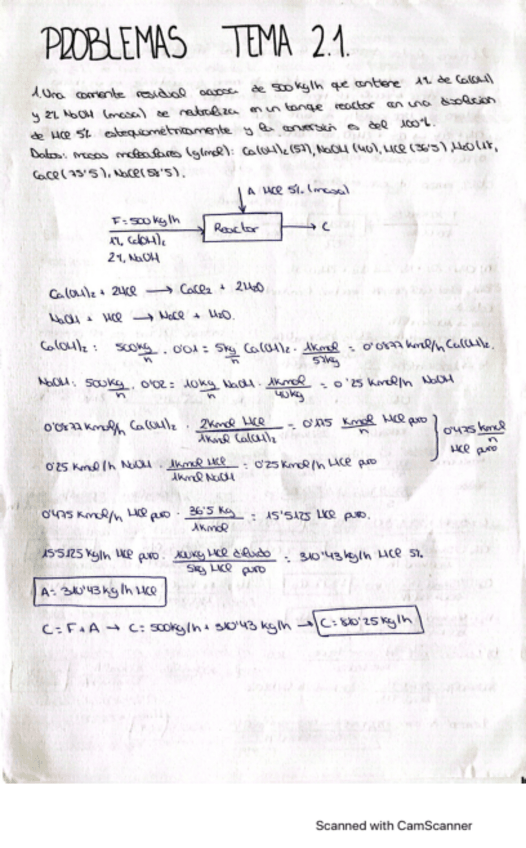 PROBLEMAS TEMA 2.1.
1. Una corriente residual acuosa de 500 kg/h que contiene 1% de Ca(OH)
y 2% NaOH (masa) se neutraliza en un tanque reactor con una disolución
de HCl 5% estequiométricamente y la conversión es del 100%.
Datos: masas moleculares (g/mol): Ca(OH)2 (57), NaOH (40), HCl (36'5), H2O (18),
CaCl (75'5), NaCl (58'5).
A HCl 5% (masa)
F = 500 kg/h
1% Ca(OH)2
2% NaOH
Reactor
C
Ca(OH)2 + 2HCl → CaCl2 + 2H2O
NaOH + HCl → NaCl + H2O.
Ca(OH)2: 500 kg/h · 0'01 = 5 kg/h Ca(OH)2 · 1Kmol/57kg = 0'0877 Kmol/h Ca(OH)2.
NaOH: 500 kg/h · 0'02 = 10 kg/h NaOH · 1Kmol/40kg = 0'25 Kmol/h NaOH
0'0877 Kmol/h Ca(OH)2 · 2Kmol HCl/1Kmol Ca(OH)2 = 0'175 Kmol/h HCl puro
0'25 Kmol/h NaOH · 1Kmol HCl/1Kmol NaOH = 0'25 Kmol/h HCl puro
0'425 Kmol/h HCl puro
0'425 Kmol/h HCl puro · 36'5 Kg/1Kmol = 15'5125 HCl puro.
15'5125 Kg/h HCl puro · 100 kg HCl diluido/5kg HCl puro = 310'43 kg/h HCl 5%.
A = 310'43 kg/h HCl
C = F + A → C = 500 kg/h + 310'43 kg/h → C = 810'25 kg/h
Scanned with CamScanner